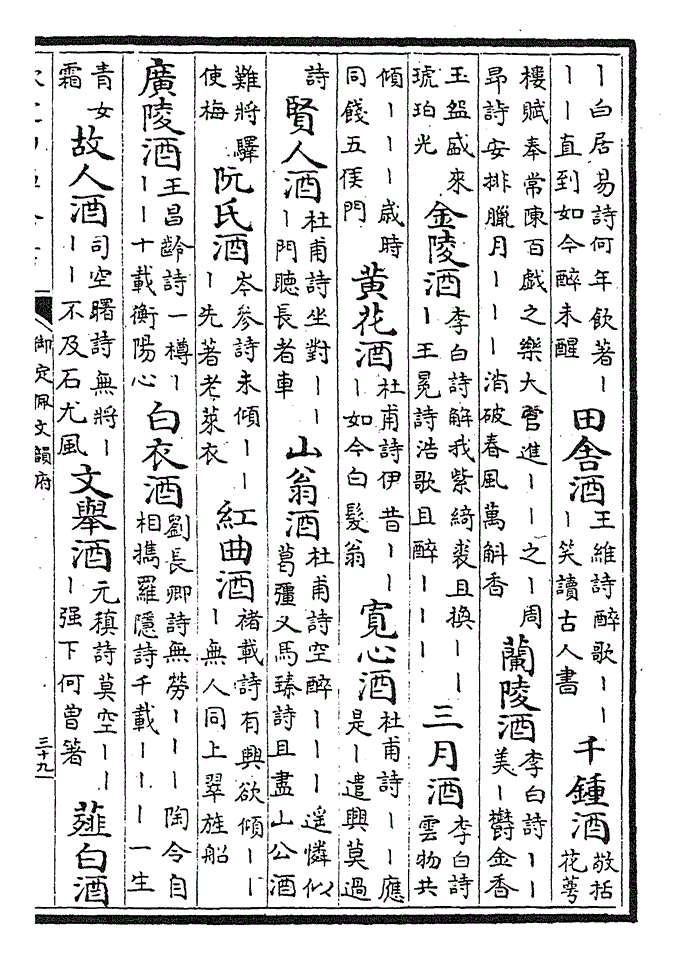 丨白居易詩何年飲著丨丨丨直到如今醉未醒 田舍酒 王維詩醉歌丨丨丨笑讀古人書 千鍾酒 敬括花萼
樓賦奉常陳百戲之樂大官進丨丨之丨周昂詩安排臘月丨丨丨消破春風萬斛香 蘭陵酒 李白詩丨丨美丨鬱金香
玉盌盛來琥珀光 金陵酒 李白詩解我紫綺裘且換丨丨丨王冕詩浩歌且醉丨丨丨 三月酒 李白詩雲物共
傾丨丨丨歲時同餞五侯門 黃花酒 杜甫詩伊昔丨丨丨如今白髮翁 寬心酒 杜甫詩丨丨應是丨遣興莫過
詩 賢人酒 杜甫詩坐對丨丨丨門聽長者車 山翁酒 杜甫詩空醉丨丨丨遥憐似葛彊又馬臻詩且盡山公酒
難將驛使梅 阮氏酒 岑參詩未傾丨丨丨先著老萊衣 紅曲酒 禇載詩有興欲傾丨丨丨無人同上翠旌船
廣陵酒 王昌齡詩一樽丨丨丨十載衡陽心 白衣酒 劉長卿詩無勞丨丨丨陶令自相擕羅隱詩千載丨丨丨一生
青女霜 故人酒 司空曙詩無將丨丨丨不及石尤風 文舉酒 元稹詩莫空丨丨丨强下何曽箸 薤白酒
御定佩文韻府 三十九